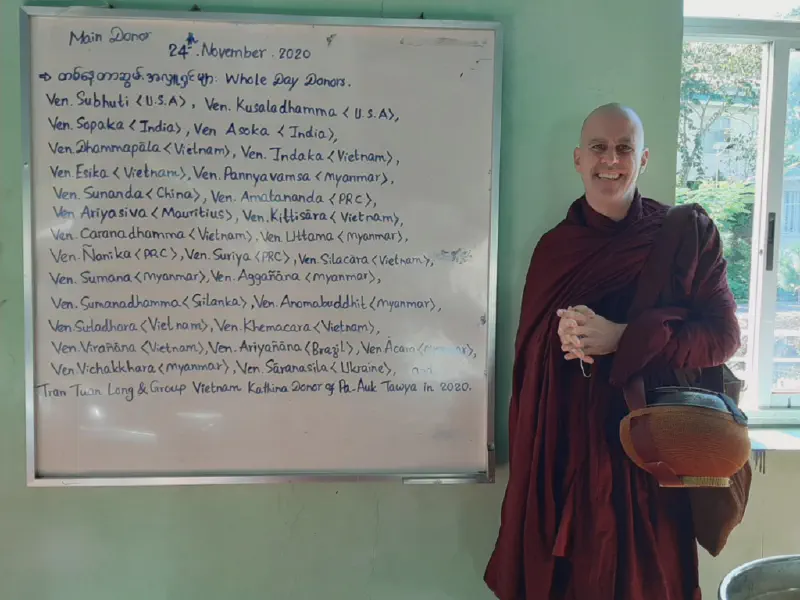 Main Donor
24th. November. 2020
⇒ တစ်နေ့တာဆွမ်းအလှူရှင်များ Whole Day Donors.
Ven. Subhuti <U.S.A>, Ven. Kusaladhamma <U.S.A>,
Ven. Sopaka <India>, Ven Asoka <India>,
Ven. Dhammapāla <Vietnam>, Ven. Indaka <Vietnam>,
Ven. Esika <Vietnam>, Ven. Pannyavamsa <Myanmar>,
Ven. Sunanda <China>, Ven. Amatananda <PRC>,
Ven Ariyasiva <Mauritius>, Ven. Kittisāra <Vietnam>,
Ven. Caranadhamma <Vietnam>, Ven. Uttama <Myanmar>,
Ven. Ñanika <PRC>, Ven. Suriya <PRC>, Ven. Silacara <Vietnam>,
Ven. Sumana <Myanmar>, Ven. Aggañāna <Myanmar>,
Ven. Sumanadhamma <Srilanka>, Ven. Anomabuddhit <Myanmar>,
Ven Suladhara <Vietnam>, Ven. Khemacara <Vietnam>,
Ven. Virañāna <Vietnam>, Ven. Ariyañana <Brazil>, Ven. Ācara <Myanmar>,
Ven Vichakkhara <Myanmar>, Ven. Sāranasila <Ukraine>, and
Tran Tuan Long & Group Vietnam Kathina Donor of Pa-Auk Tawya in 2020.